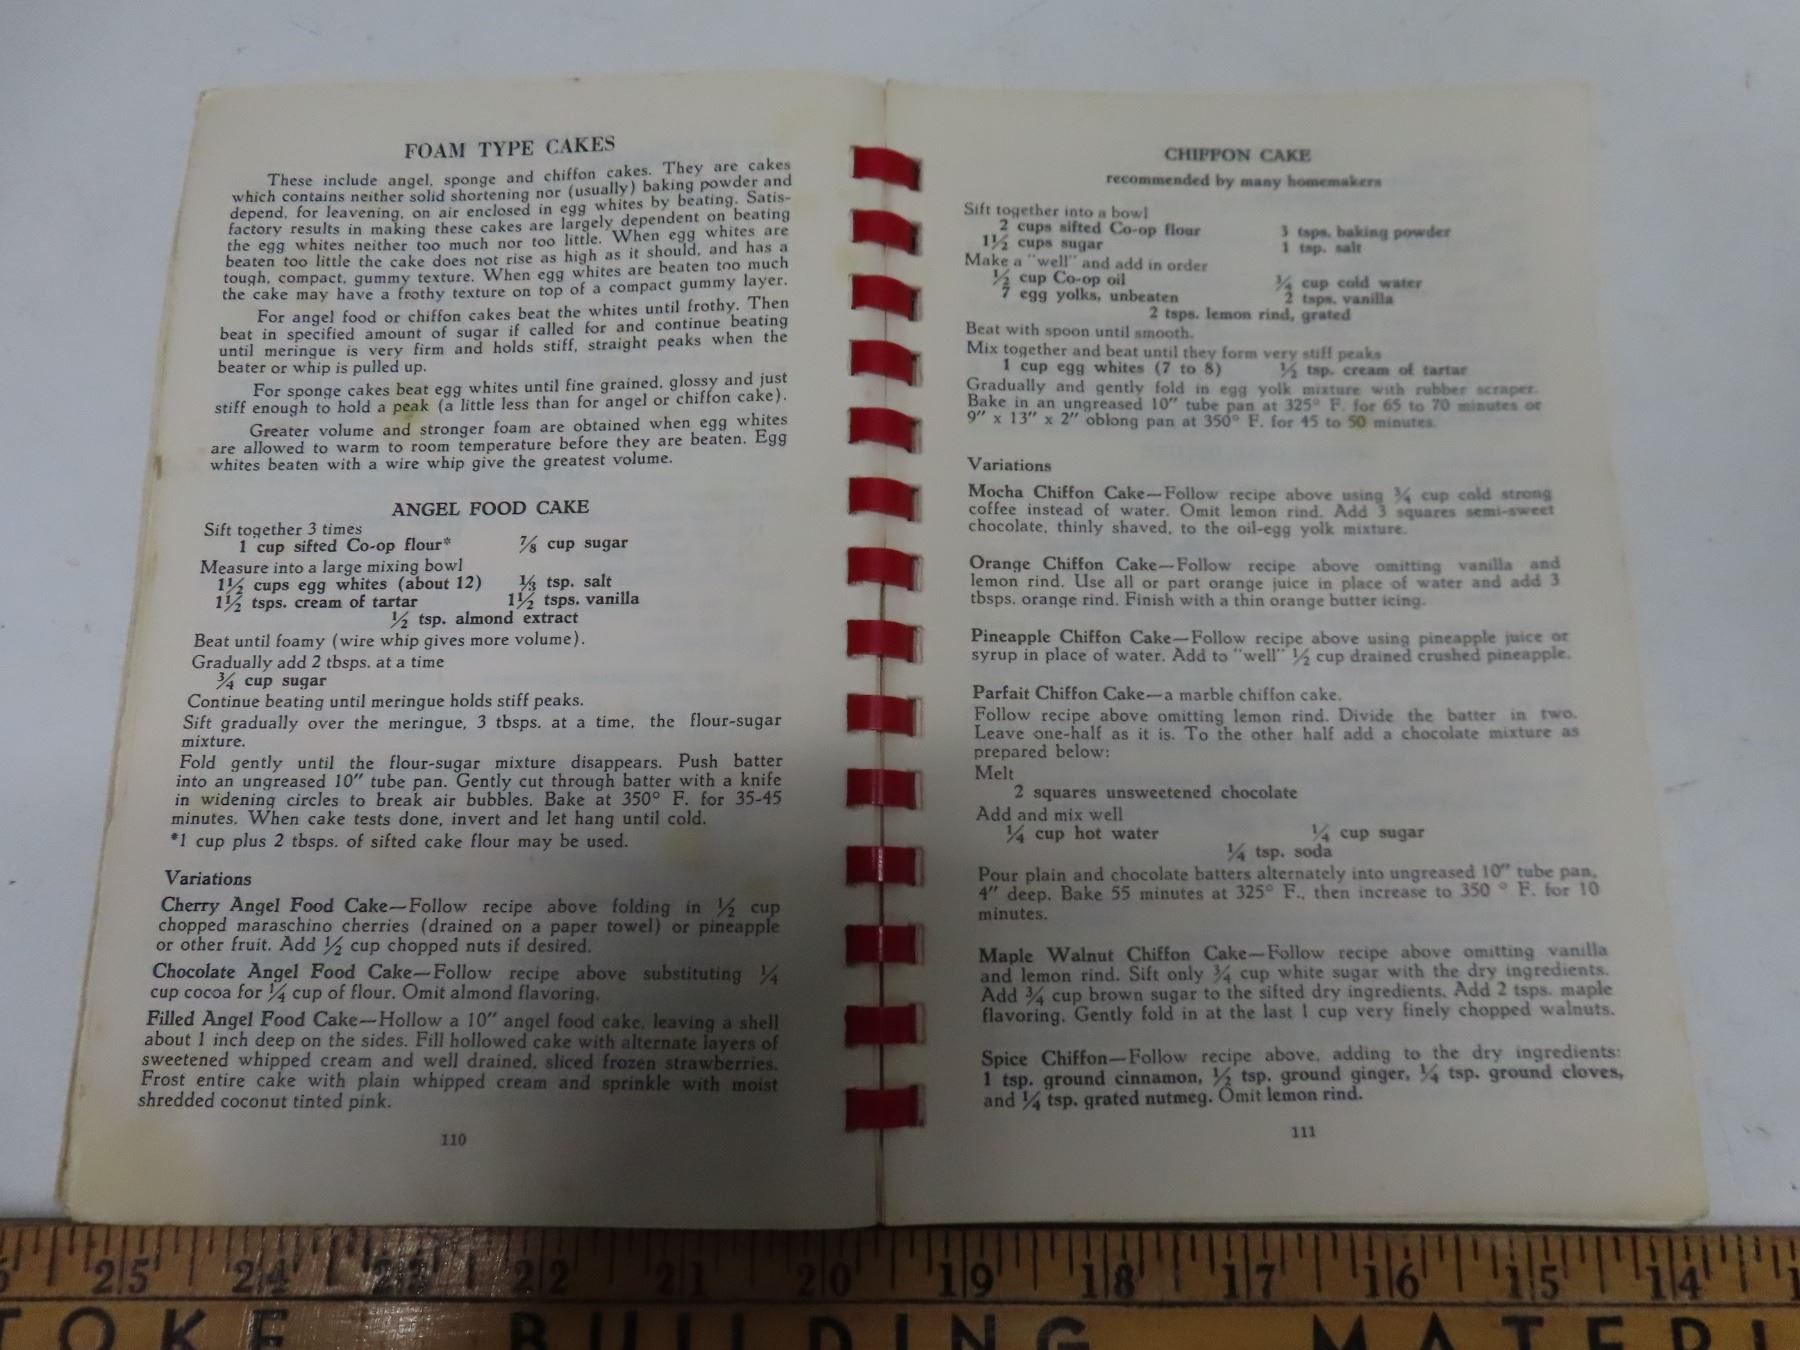 FOAM TYPE CAKES
These include angel, sponge and chiffon cakes. They are cakes
which contains neither solid shortening nor (usually) baking powder and
depend, for leavening, on air enclosed in egg whites by beating. Satis-
factory results in making these cakes are largely dependent on beating
the egg whites neither too much nor too little. When egg whites are
beaten too little the cake does not rise as high as it should, and has a
tough, compact, gummy texture. When egg whites are beaten too much
the cake may have a frothy texture on top of a compact gummy layer.
For angel food or chiffon cakes beat the whites until frothy. Then
beat in specified amount of sugar if called for and continue beating
until meringue is very firm and holds stiff, straight peaks when the
beater or whip is pulled up.
For sponge cakes beat egg whites until fine grained, glossy and just
stiff enough to hold a peak (a little less than for angel or chiffon cake).
Greater volume and stronger foam are obtained when egg whites
are allowed to warm to room temperature before they are beaten. Egg
whites beaten with a wire whip give the greatest volume.
ANGEL FOOD CAKE
Sift together 3 times
1 cup sifted Co-op flour* ⅞ cup sugar
Measure into a large mixing bowl
1½ cups egg whites (about 12) ⅓ tsp. salt
1½ tsps. cream of tartar 1½ tsps. vanilla
½ tsp. almond extract
Beat until foamy (wire whip gives more volume).
Gradually add 2 tbsps. at a time
¾ cup sugar
Continue beating until meringue holds stiff peaks.
Sift gradually over the meringue, 3 tbsps. at a time, the flour-sugar
mixture.
Fold gently until the flour-sugar mixture disappears. Push batter
into an ungreased 10″ tube pan. Gently cut through batter with a knife
in widening circles to break air bubbles. Bake at 350° F. for 35-45
minutes. When cake tests done, invert and let hang until cold.
*1 cup plus 2 tbsps. of sifted cake flour may be used.
Variations
Cherry Angel Food Cake—Follow recipe above folding in ½ cup
chopped maraschino cherries (drained on a paper towel) or pineapple
or other fruit. Add ½ cup chopped nuts if desired.
Chocolate Angel Food Cake—Follow recipe above substituting ¼
cup cocoa for ¼ cup of flour. Omit almond flavoring.
Filled Angel Food Cake—Hollow a 10″ angel food cake, leaving a shell
about 1 inch deep on the sides. Fill hollowed cake with alternate layers of
sweetened whipped cream and well drained, sliced frozen strawberries.
Frost entire cake with plain whipped cream and sprinkle with moist
shredded coconut tinted pink.
110
CHIFFON CAKE
recommended by many homemakers
Sift together into a bowl
2 cups sifted Co-op flour 3 tsps. baking powder
1½ cups sugar 1 tsp. salt
Make a "well" and add in order
½ cup Co-op oil ¾ cup cold water
7 egg yolks, unbeaten 2 tsps. vanilla
2 tsps. lemon rind, grated
Beat with spoon until smooth.
Mix together and beat until they form very stiff peaks
1 cup egg whites (7 to 8) ½ tsp. cream of tartar
Gradually and gently fold in egg yolk mixture with rubber scraper.
Bake in an ungreased 10″ tube pan at 325° F. for 65 to 70 minutes or
9″ x 13″ x 2″ oblong pan at 350° F. for 45 to 50 minutes.
Variations
Mocha Chiffon Cake—Follow recipe above using ¾ cup cold strong
coffee instead of water. Omit lemon rind. Add 3 squares semi-sweet
chocolate, thinly shaved, to the oil-egg yolk mixture.
Orange Chiffon Cake—Follow recipe above omitting vanilla and
lemon rind. Use all or part orange juice in place of water and add 3
tbsps. orange rind. Finish with a thin orange butter icing.
Pineapple Chiffon Cake—Follow recipe above using pineapple juice or
syrup in place of water. Add to "well" ½ cup drained crushed pineapple.
Parfait Chiffon Cake—a marble chiffon cake.
Follow recipe above omitting lemon rind. Divide the batter in two.
Leave one-half as it is. To the other half add a chocolate mixture as
prepared below:
Melt
2 squares unsweetened chocolate
Add and mix well
¼ cup hot water ¼ cup sugar
¼ tsp. soda
Pour plain and chocolate batters alternately into ungreased 10″ tube pan,
4″ deep. Bake 55 minutes at 325° F., then increase to 350 ° F. for 10
minutes.
Maple Walnut Chiffon Cake—Follow recipe above omitting vanilla
and lemon rind. Sift only ¾ cup white sugar with the dry ingredients.
Add ¾ cup brown sugar to the sifted dry ingredients. Add 2 tsps. maple
flavoring. Gently fold in at the last 1 cup very finely chopped walnuts.
Spice Chiffon—Follow recipe above, adding to the dry ingredients:
1 tsp. ground cinnamon, ½ tsp. ground ginger, ¼ tsp. ground cloves,
and ¼ tsp. grated nutmeg. Omit lemon rind.
111
25 24 23 22 21 20 19 18 17 16 15 14
TOKE BUILDING MATERI